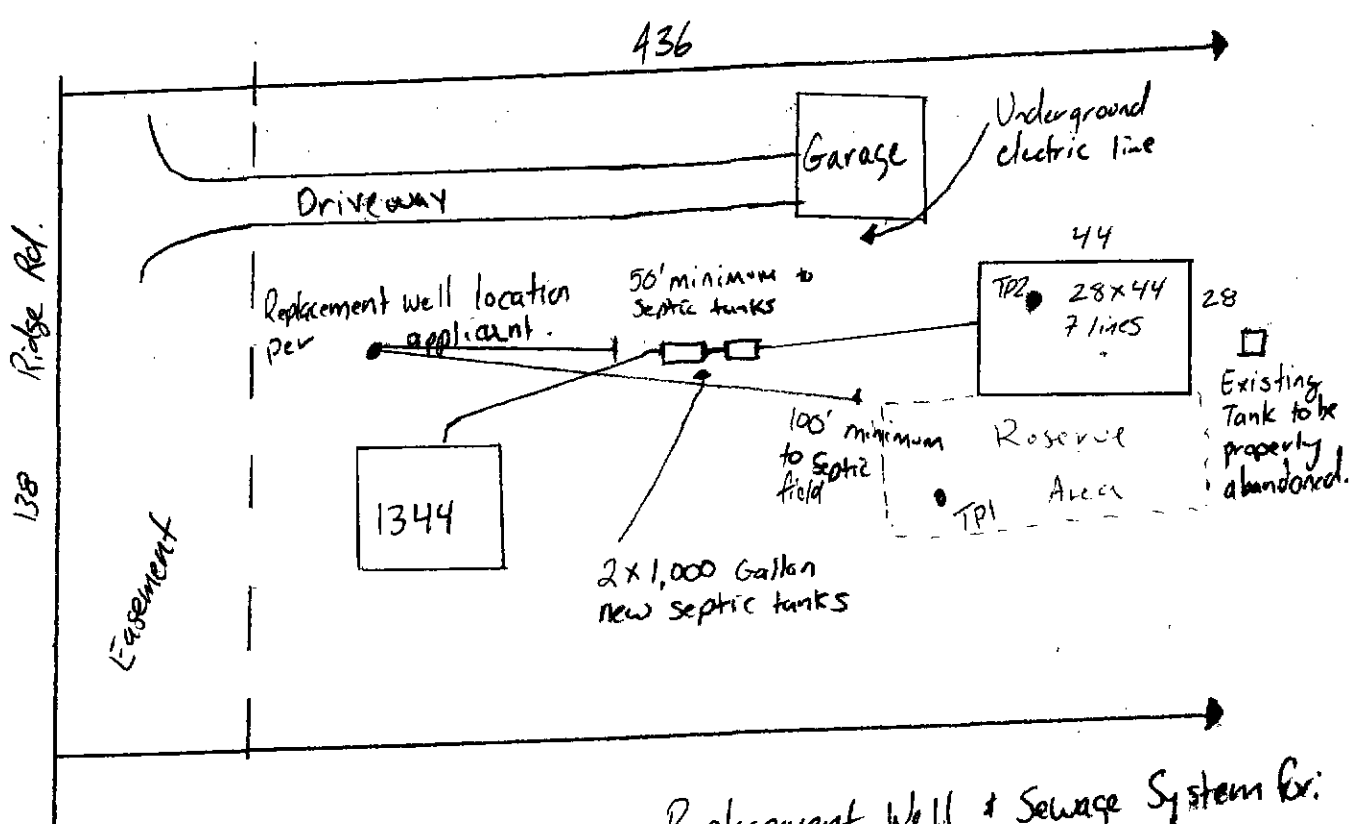 436
Underground
electric line
Garage
Driveway
138 Ridge Rd.
Easement
Replacement well location
per applicant.
50' minimum to
septic tanks
44
TP2 28x44
7 lines
28
Existing
Tank to be
properly
abandoned.
100' minimum
to septic
field
Reserve
Area
TP1
1344
2 x 1,000 Gallon
new septic tanks
Replacement Well & Sewage System for: